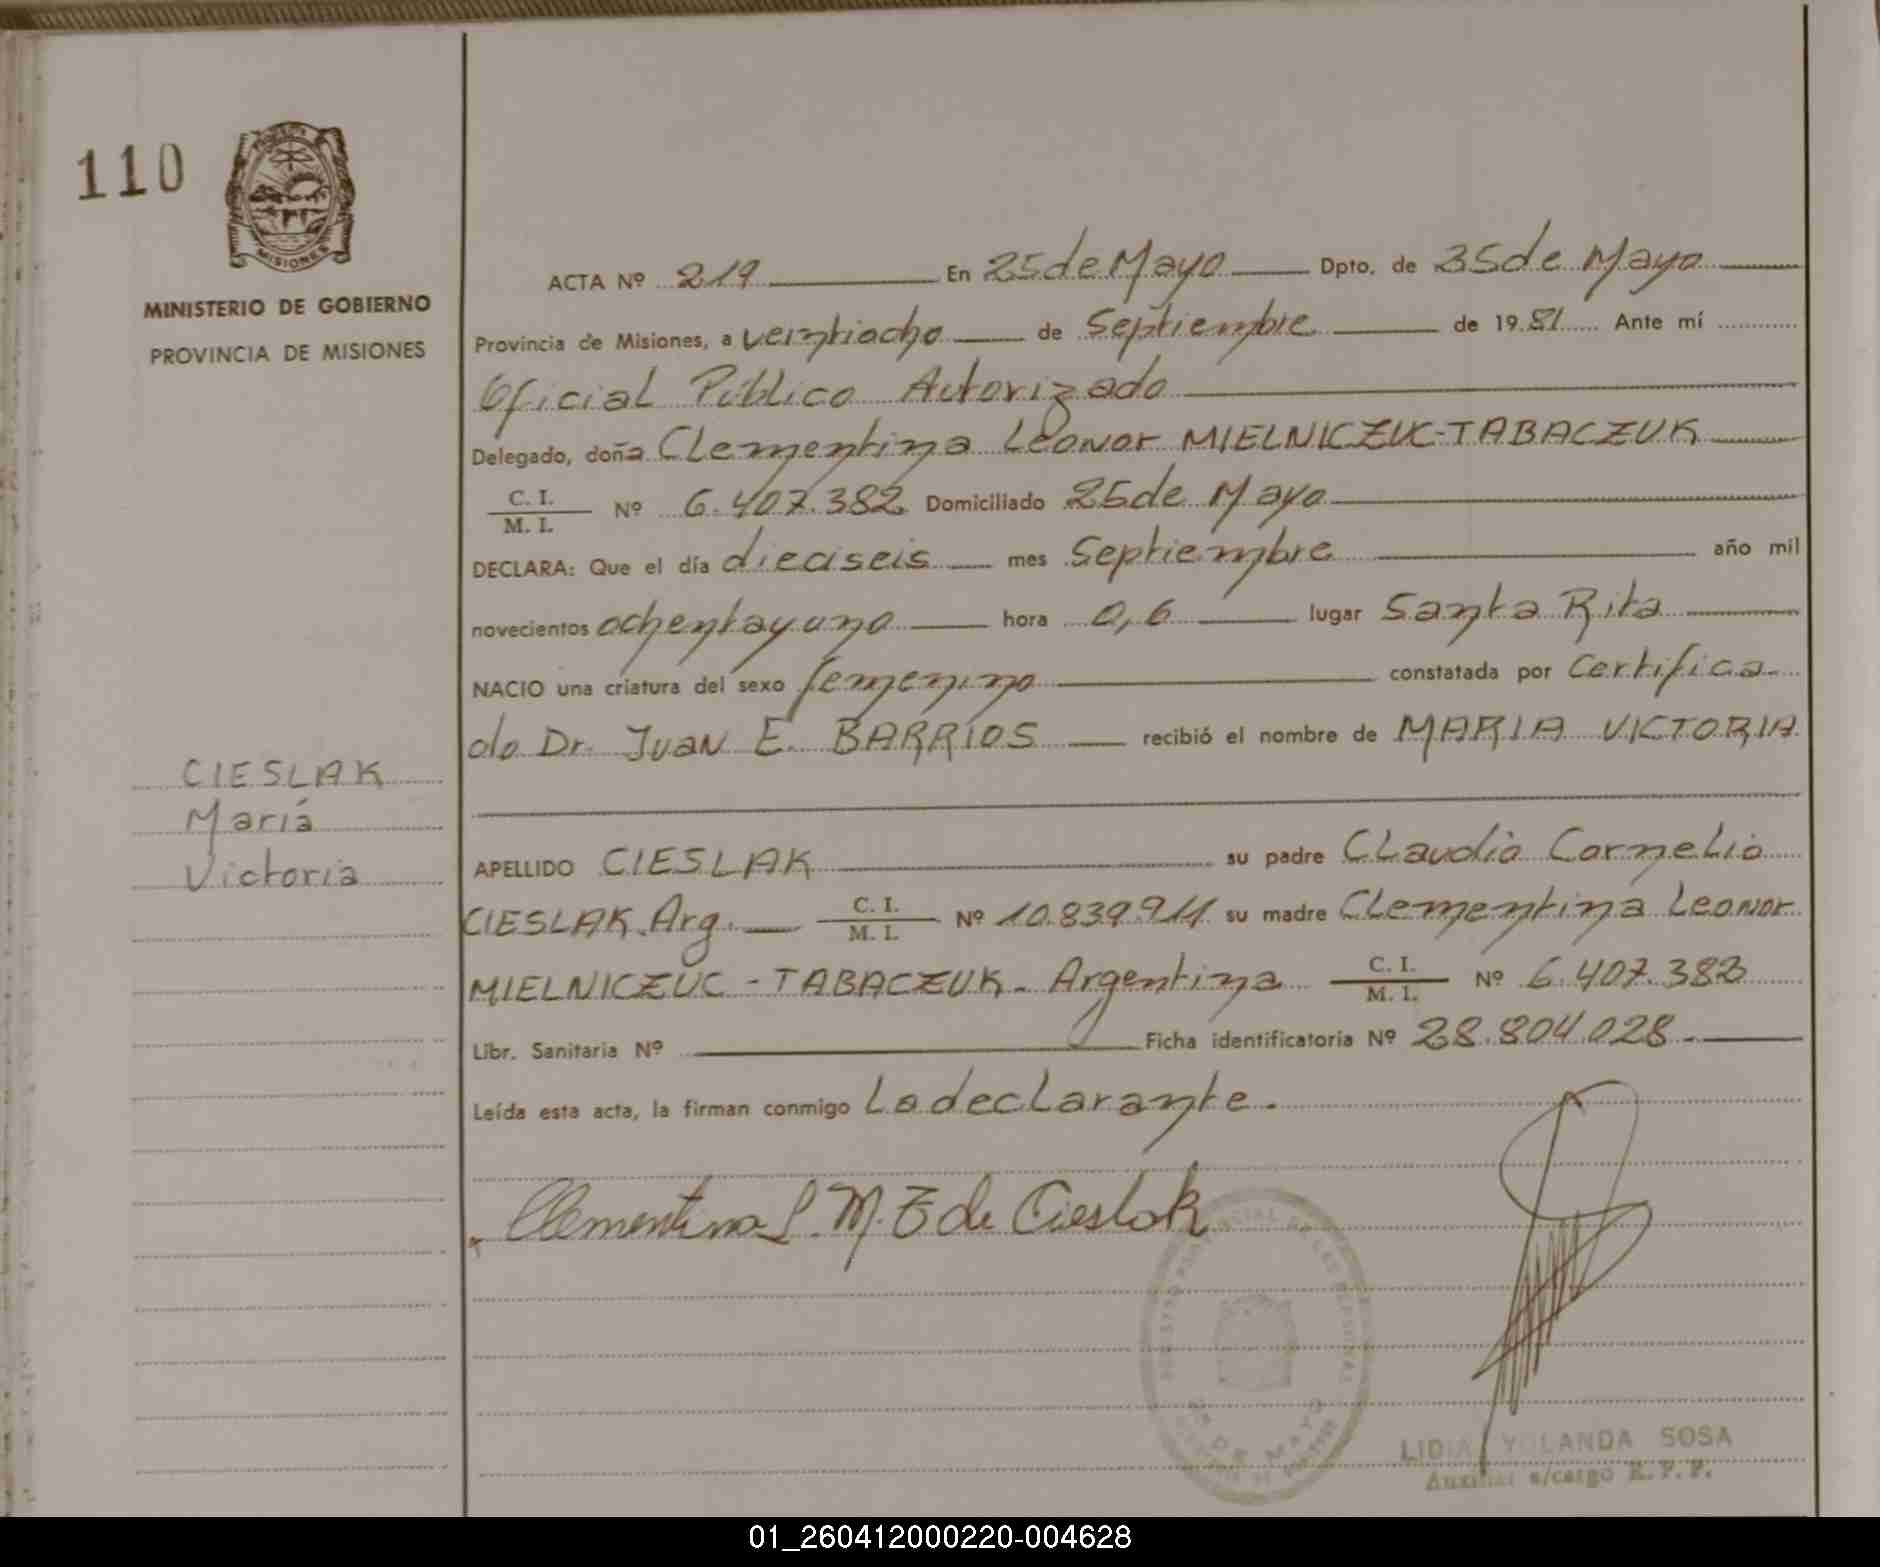 110
MISIONES
MINISTERIO DE GOBIERNO
PROVINCIA DE MISIONES
CIESLAK
María
Victoria
ACTA Nº 219 En 25 de Mayo Dpto. de 25 de Mayo
Provincia de Misiones, a veintiocho de Septiembre de 1981 Ante mí
Oficial Público Autorizado
Delegado, doña Clementina Leonor MIELNICZUC-TABACZUK
C. I.
M. I. Nº 6.407.382 Domiciliado 25 de Mayo
DECLARA: Que el día dieciseis mes Septiembre año mil
novecientos ochentayuno hora 0,6 lugar Santa Rita
NACIO una criatura del sexo femenino constatada por Certifica-
do Dr. Juan E. BARRIOS recibió el nombre de MARIA VICTORIA
APELLIDO CIESLAK su padre Claudio Cornelio
CIESLAK. Arg. C. I.
M. I. Nº 10.839.911 su madre Clementina Leonor
MIELNICZUC-TABACZUK- Argentina C. I.
M. I. Nº 6.407.382
Libr. Sanitaria Nº Ficha identificatoria Nº 28.804.028.-
Leída esta acta, la firman conmigo La declarante.
Clementina L. M. T de Cieslak
25 DE MAYO
LIDIA YOLANDA SOSA
Auxiliar a/cargo R. P. P.
01_260412000220-004628